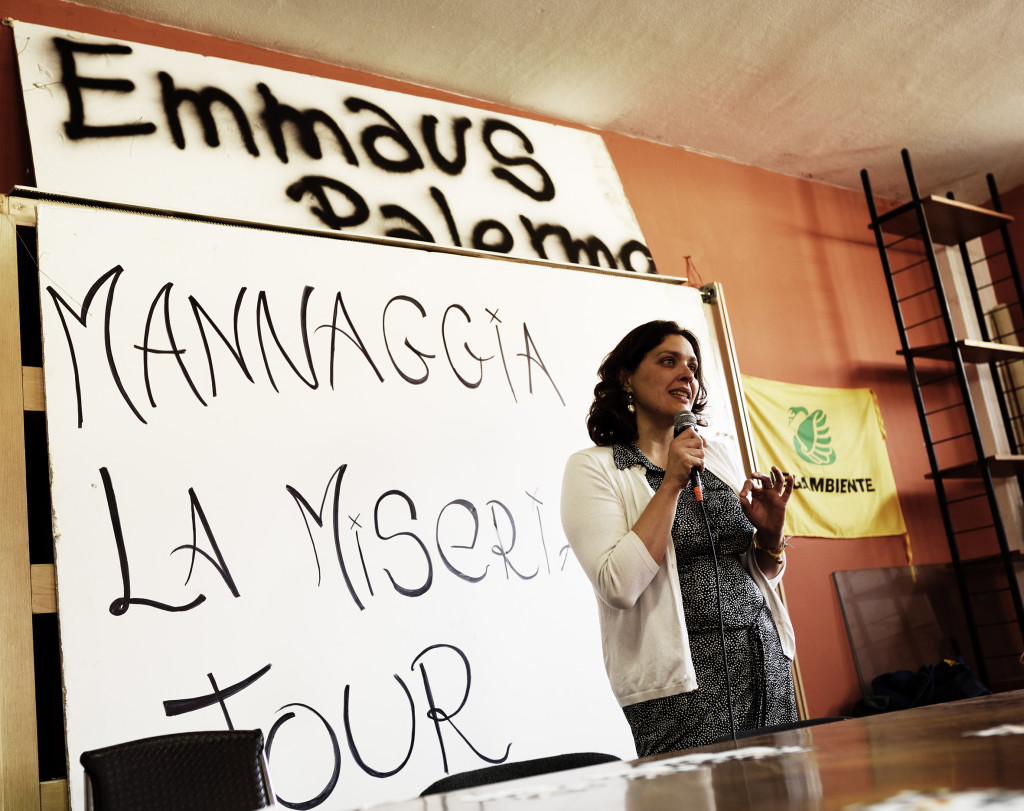 Emmaus
Palermo
MANNAGGIA
LA MiSeRiA
TOUR
LEGAMBIENTE